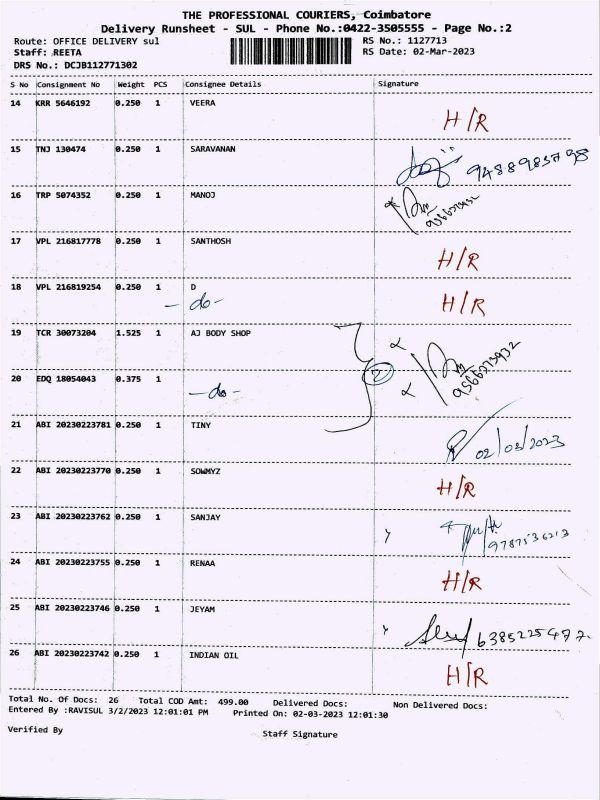 THE PROFESSIONAL COURIERS, Coimbatore
Delivery Runsheet - SUL - Phone No.:0422-3505555 - Page No.:2
Route: OFFICE DELIVERY sul RS No.: 1127713
Staff: REETA RS Date: 02-Mar-2023
DRS No.: DCJB112771302
S No Consignment No Weight PCS Consignee Details Signature
14 KRR 5646192 0.250 1 VEERA
H/R
15 TNJ 130474 0.250 1 SARAVANAN
9488983798
16 TRP 5074352 0.250 1 MANOJ
17 VPL 216817778 0.250 1 SANTHOSH
H/R
18 VPL 216819254 0.250 1 D
-do- H/R
19 TCR 30073204 1.525 1 AJ BODY SHOP
2 9566273932
20 EDQ 18054043 0.375 1
-do-
21 ABI 20230223781 0.250 1 TINY
02/03/2023
22 ABI 20230223770 0.250 1 SOWMYZ
H/R
23 ABI 20230223762 0.250 1 SANJAY
9787536213
24 ABI 20230223755 0.250 1 RENAA
H/R
25 ABI 20230223746 0.250 1 JEYAM
6385225477
26 ABI 20230223742 0.250 1 INDIAN OIL
H/R
Total No. Of Docs: 26 Total COD Amt: 499.00 Delivered Docs: Non Delivered Docs:
Entered By :RAVISUL 3/2/2023 12:01:01 PM Printed On: 02-03-2023 12:01:30
Verified By Staff Signature